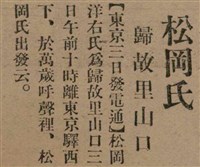 松岡氏
歸故里山口
【東京三日發電通】松岡
洋右氏爲歸故里山口三
日午前十時離東京驛西
下、於萬歲呼聲裡、松
岡氏出發云。